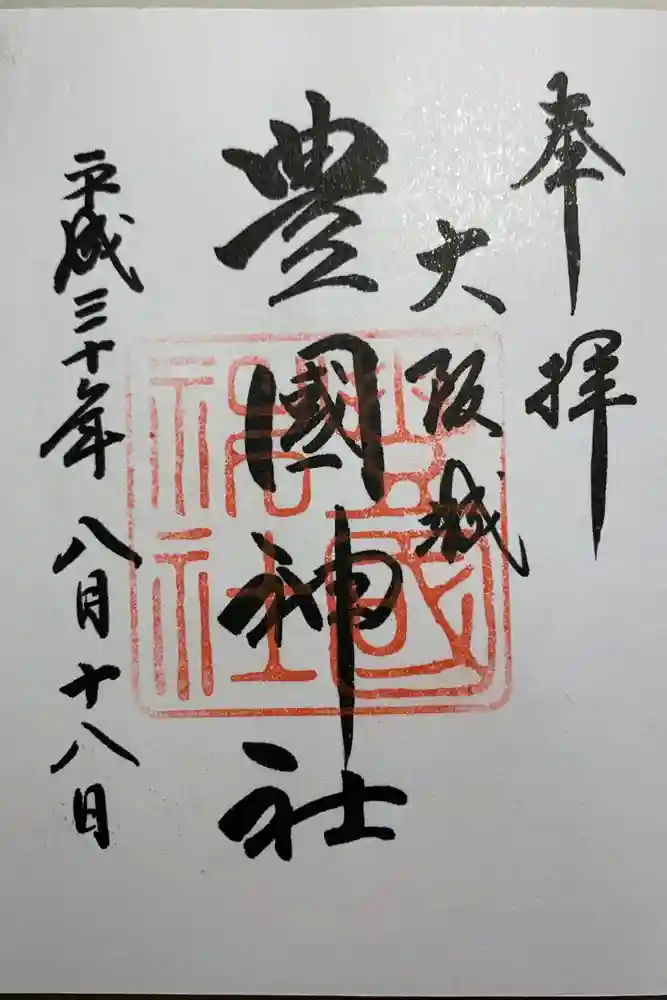 奉拝
大阪城
豊國神社
豊國神社
平成三十年八月十八日